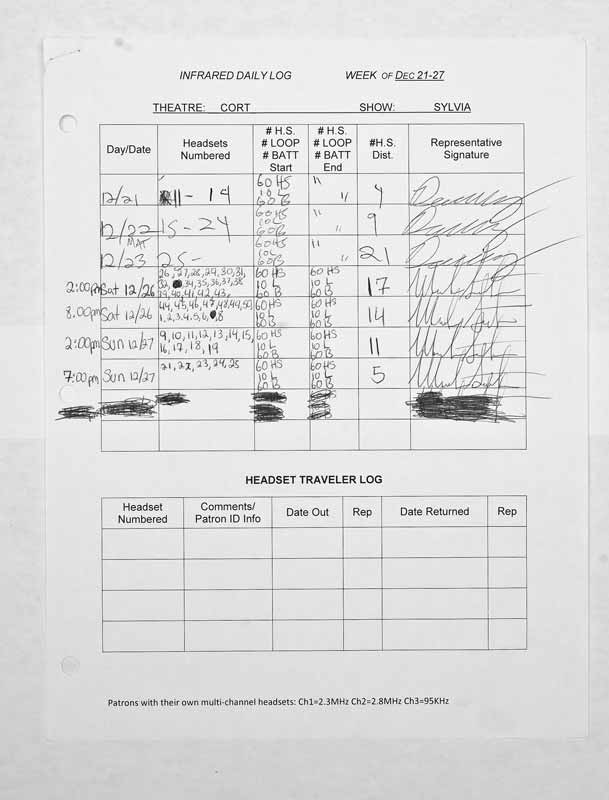 INFRARED DAILY LOG WEEK OF DEC 21-27
THEATRE: CORT SHOW: SYLVIA
Day/Date Headsets Numbered # H.S. # LOOP # BATT Start # H.S. # LOOP # BATT End #H.S. Dist. Representative Signature
12/21 11 - 14 60 HS 10 L 60 B " " 4
12/22 15 - 24 60HS 10L 60B " " 9
12/23 MAT 25 - 60HS 10L 60B " " 21
2:00pm Sat 12/26 26, 27, 28, 29, 30, 31, 32, 34, 35, 36, 37, 38 39, 40, 41, 42, 43, 60 HS 10 L 60 B 60 HS 10 L 60 B 17
8:00pm Sat 12/26 44, 45, 46, 47, 48, 49, 50, 1, 2, 3, 4, 5, 6, 8 60 HS 10 L 60 B 60 HS 10 L 60 B 14
2:00pm Sun 12/27 9, 10, 11, 12, 13, 14, 15, 16, 17, 18, 19 60 HS 10 L 60 B 60 HS 10 L 60 B 11
7:00pm Sun 12/27 21, 22, 23, 24, 25 60 HS 10 L 60 B 60 HS 10 L 60 B 5
HEADSET TRAVELER LOG
Headset Numbered Comments/ Patron ID Info Date Out Rep Date Returned Rep
Patrons with their own multi-channel headsets: Ch1=2.3MHz Ch2=2.8MHz Ch3=95KHz